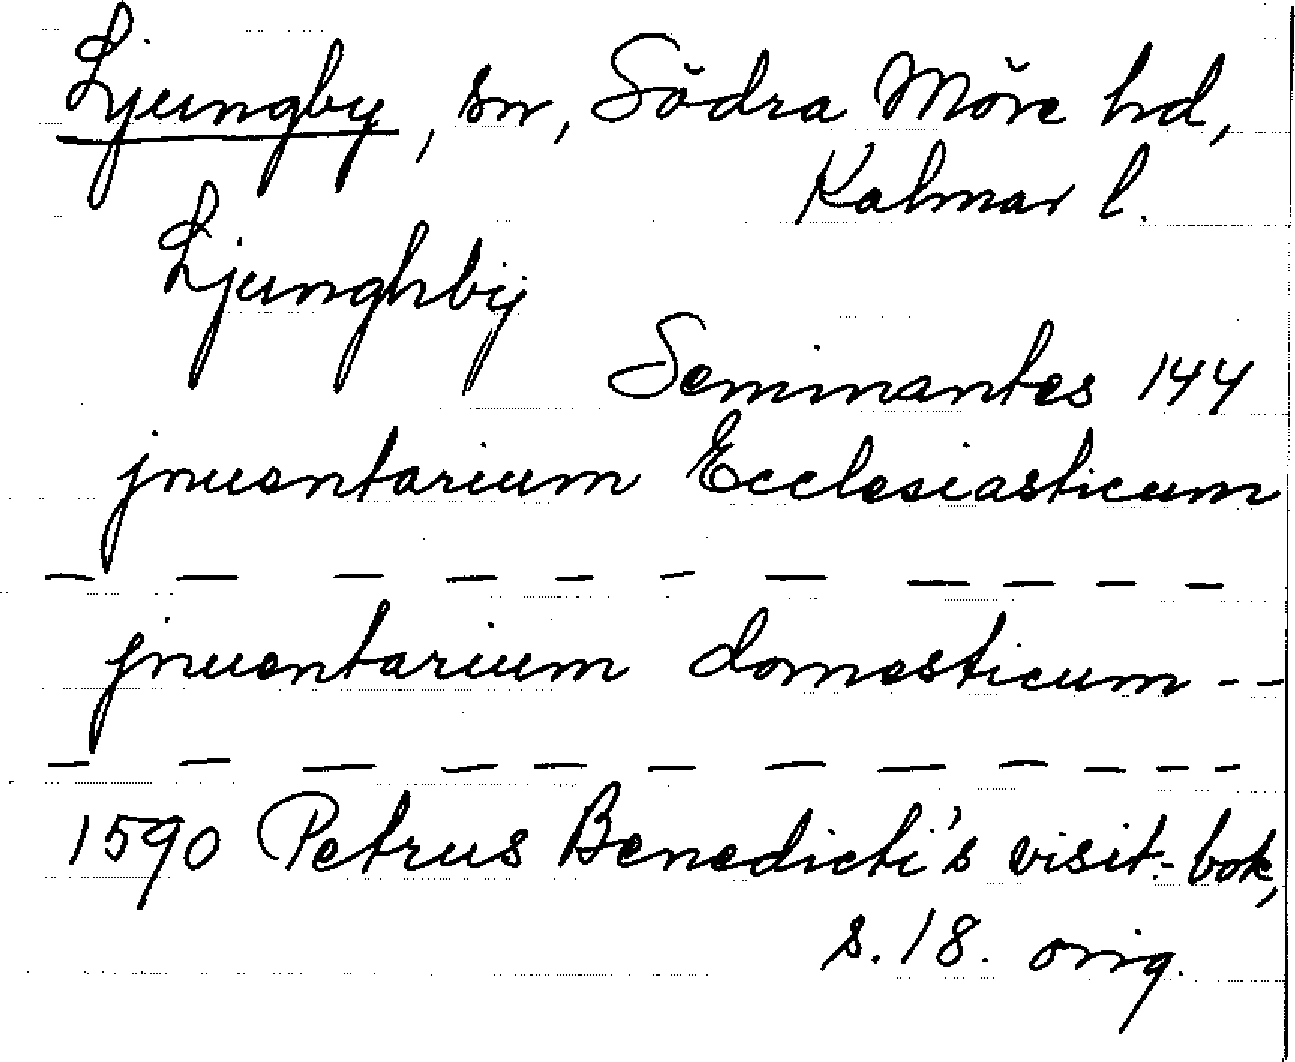 Ljungby, sn, Södra Möre hd,
Kalmar l.
Ljunghbÿ
Seminantes 144
jnuentarium Ecclesiasticum
— — — — — — — — — — —
jnuentarium domesticum - -
— — — — — — — — — — — —
1590 Petrus Benedicti's visit.-bok,
s. 18. orig.